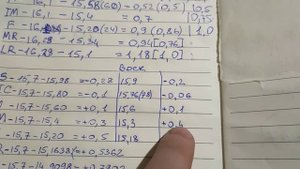 -16,1-15,58(60)=0,52(0,5) | 0,5
IM-16,1-15,4 =0,7 | 0,75
F-16, -15,20(24)=0,9(0,86) | 1,0
MR-16,28-15,34 =0,94[0,76]
LR-16,28-15,1 =1,18[1,0]
Воск
S-15,7-15,98 =-0,28 | 15,9 | -0,2
TC-15,7-15,80 =-0,1 | 15,76(78) | -0,06
-15,7-15,60 =+0,1 | 15,6 | +0,1
-15,7-15,4 =+0,3 | 15,3 | +0,4
-15,7-15,20 =+0,5 | 15,18
-15,7-15,1638)=+0,5362
-15,7-14,9098=+0,7902